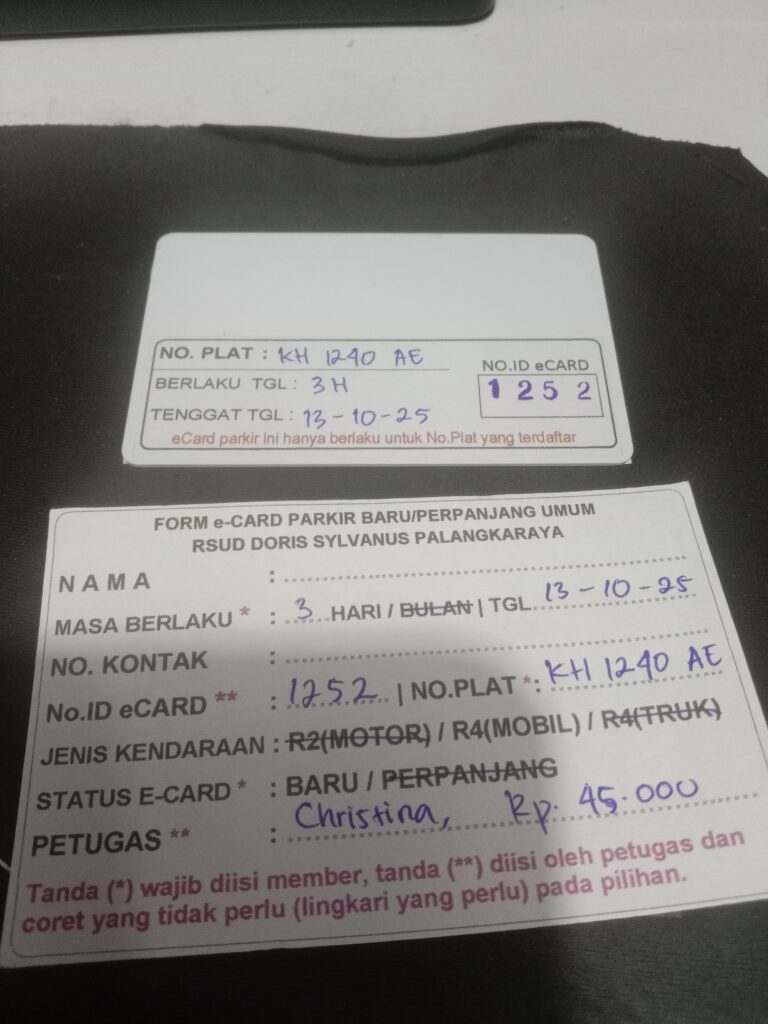 NO. PLAT : KH 1240 AE
BERLAKU TGL : 3 H
TENGGAT TGL : 13-10-25
NO.ID eCARD
1252
eCard parkir ini hanya berlaku untuk No.Plat yang terdaftar
FORM e-CARD PARKIR BARU/PERPANJANG UMUM
RSUD DORIS SYLVANUS PALANGKARAYA
NAMA :
MASA BERLAKU * : 3 HARI / BULAN | TGL 13-10-25
NO. KONTAK :
No.ID eCARD ** : 1252 | NO.PLAT *: KH 1240 AE
JENIS KENDARAAN : R2(MOTOR) / R4(MOBIL) / R4(TRUK)
STATUS E-CARD * : BARU / PERPANJANG
PETUGAS ** : Christina, Rp. 45.000
Tanda (*) wajib diisi member, tanda (**) diisi oleh petugas dan
coret yang tidak perlu (lingkari yang perlu) pada pilihan.